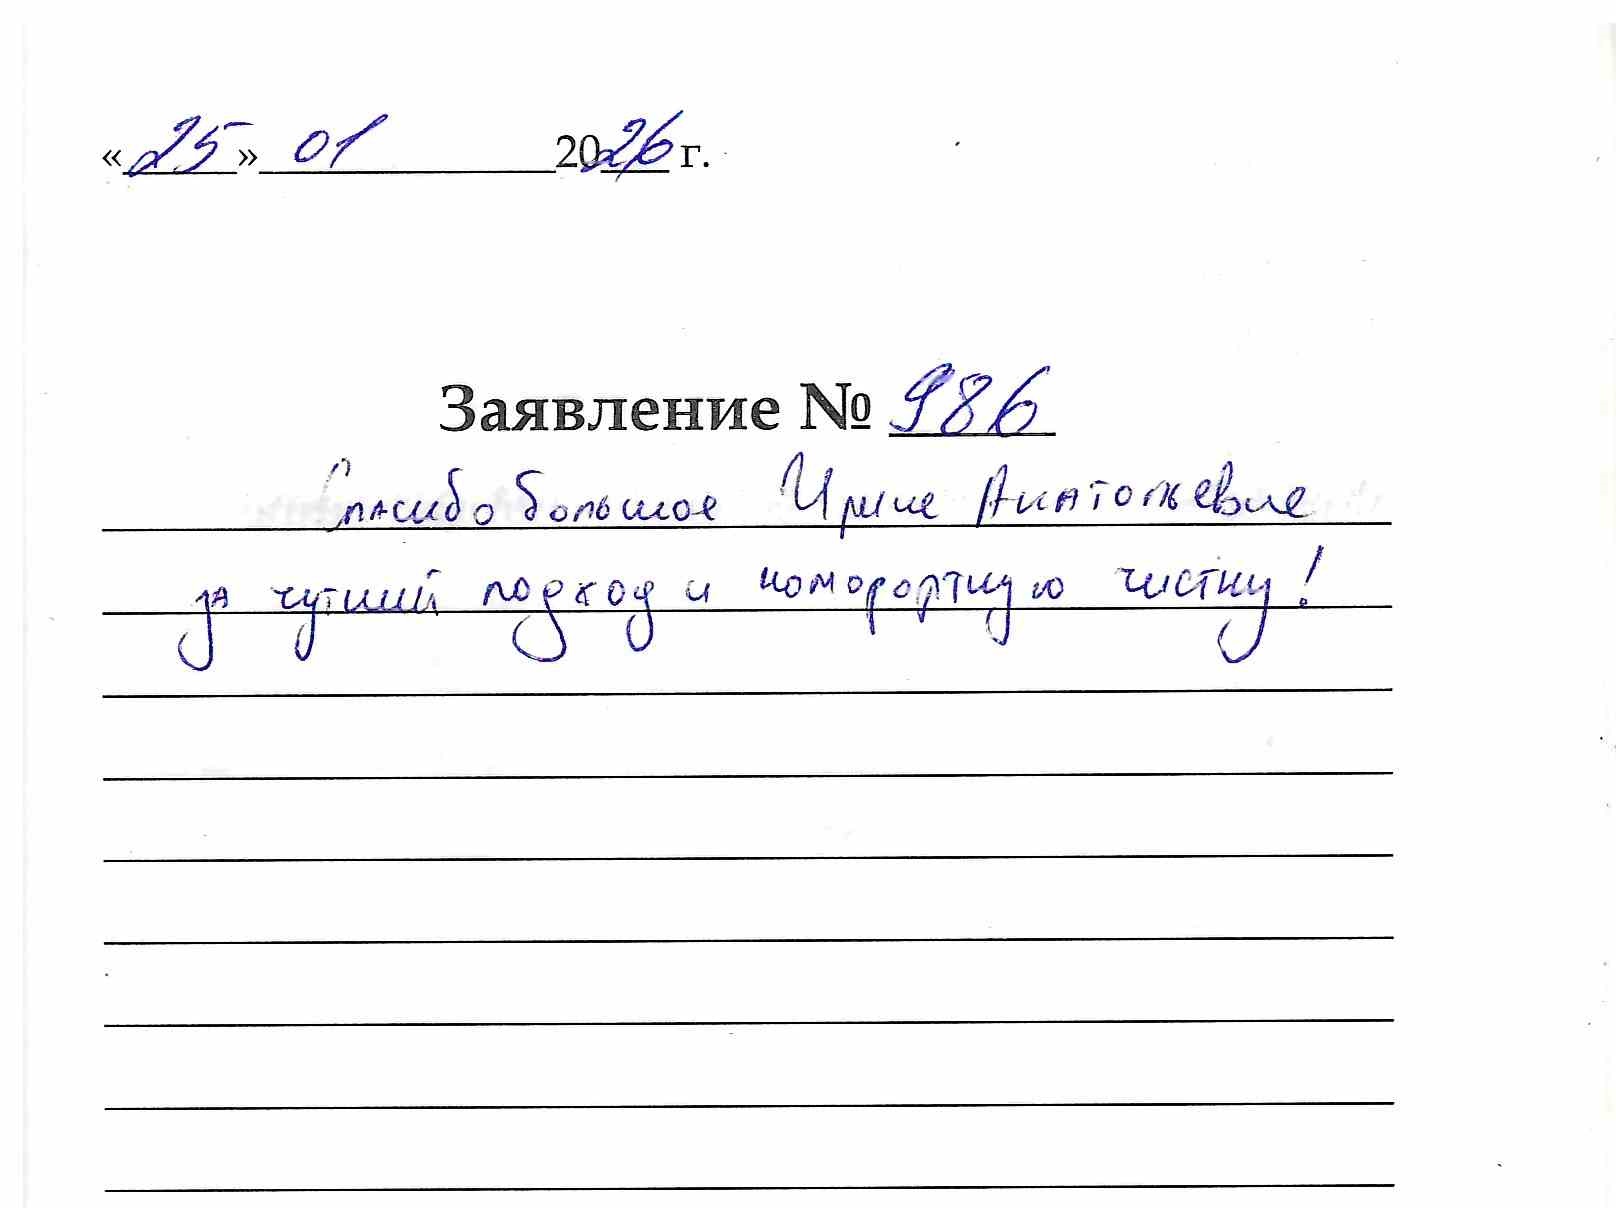 «25» 01 2026 г.
Заявление № 986
Спасибо большое Ирине Анатольевне
за чуткий подход и комфортную чистку!